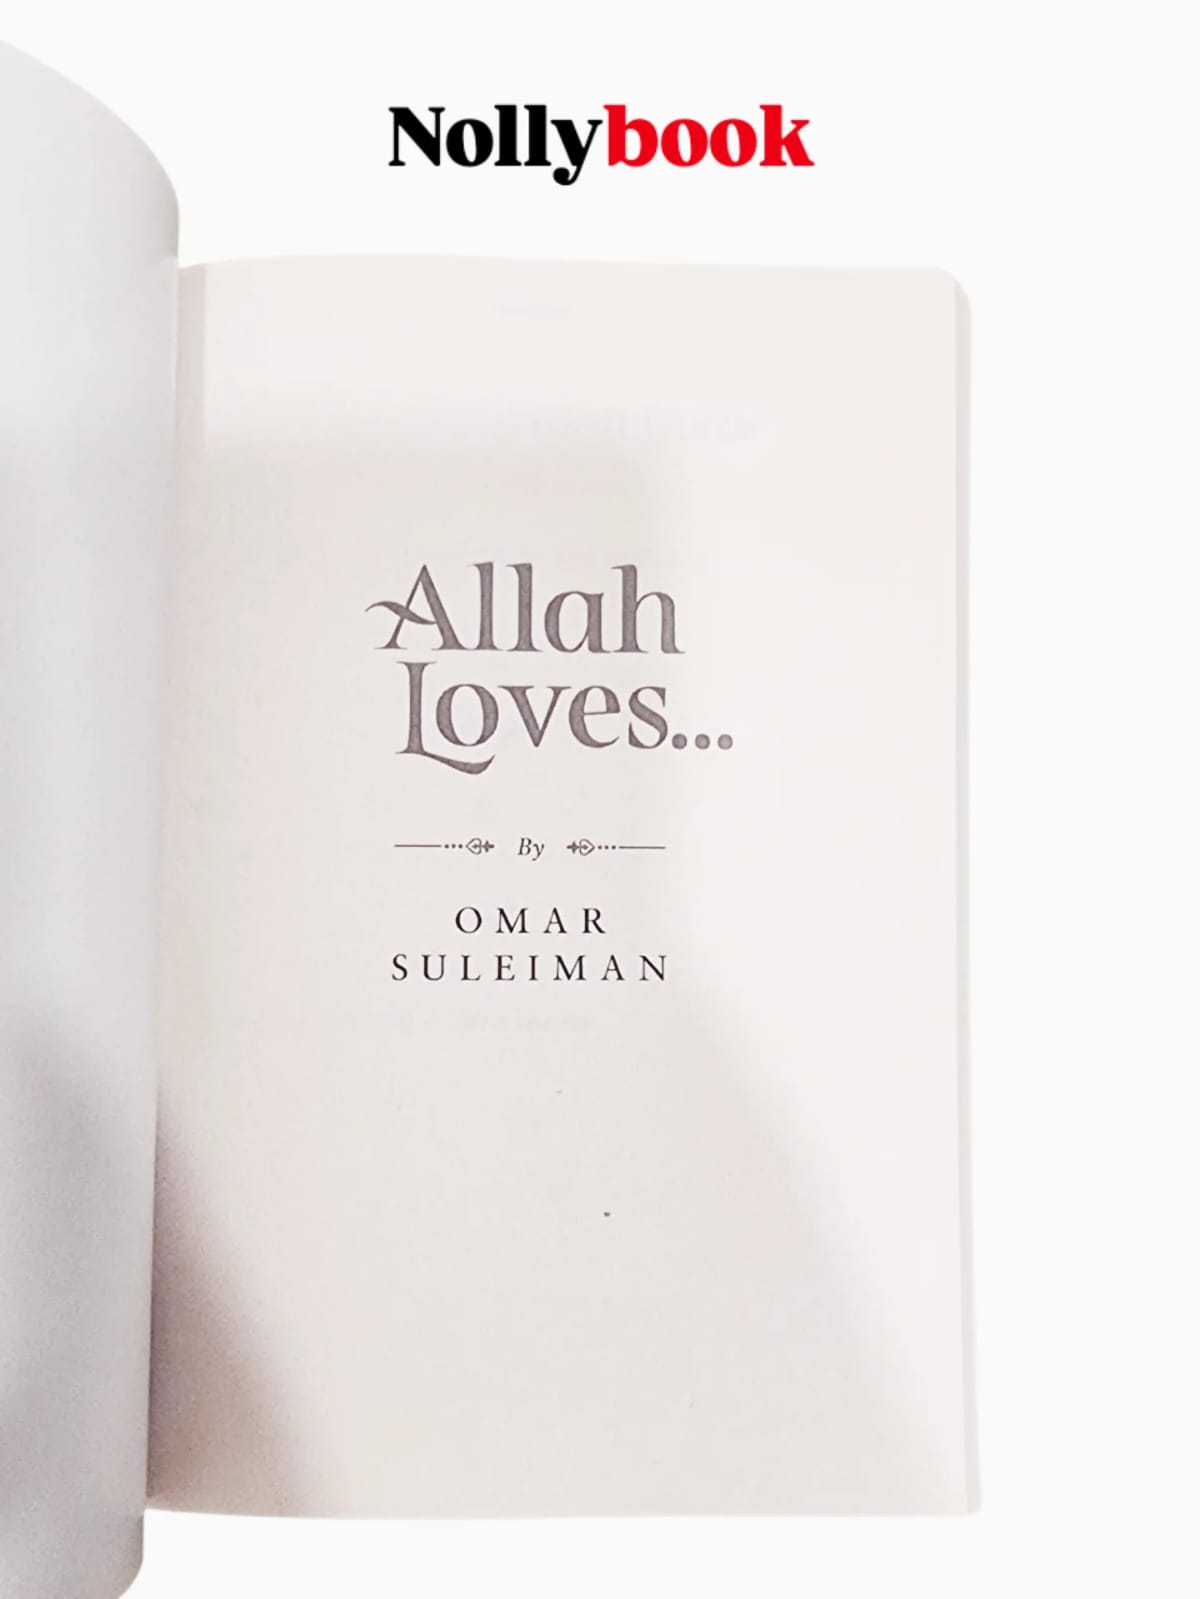 Nollybook
Allah
Loves...
By
OMAR
SULEIMAN